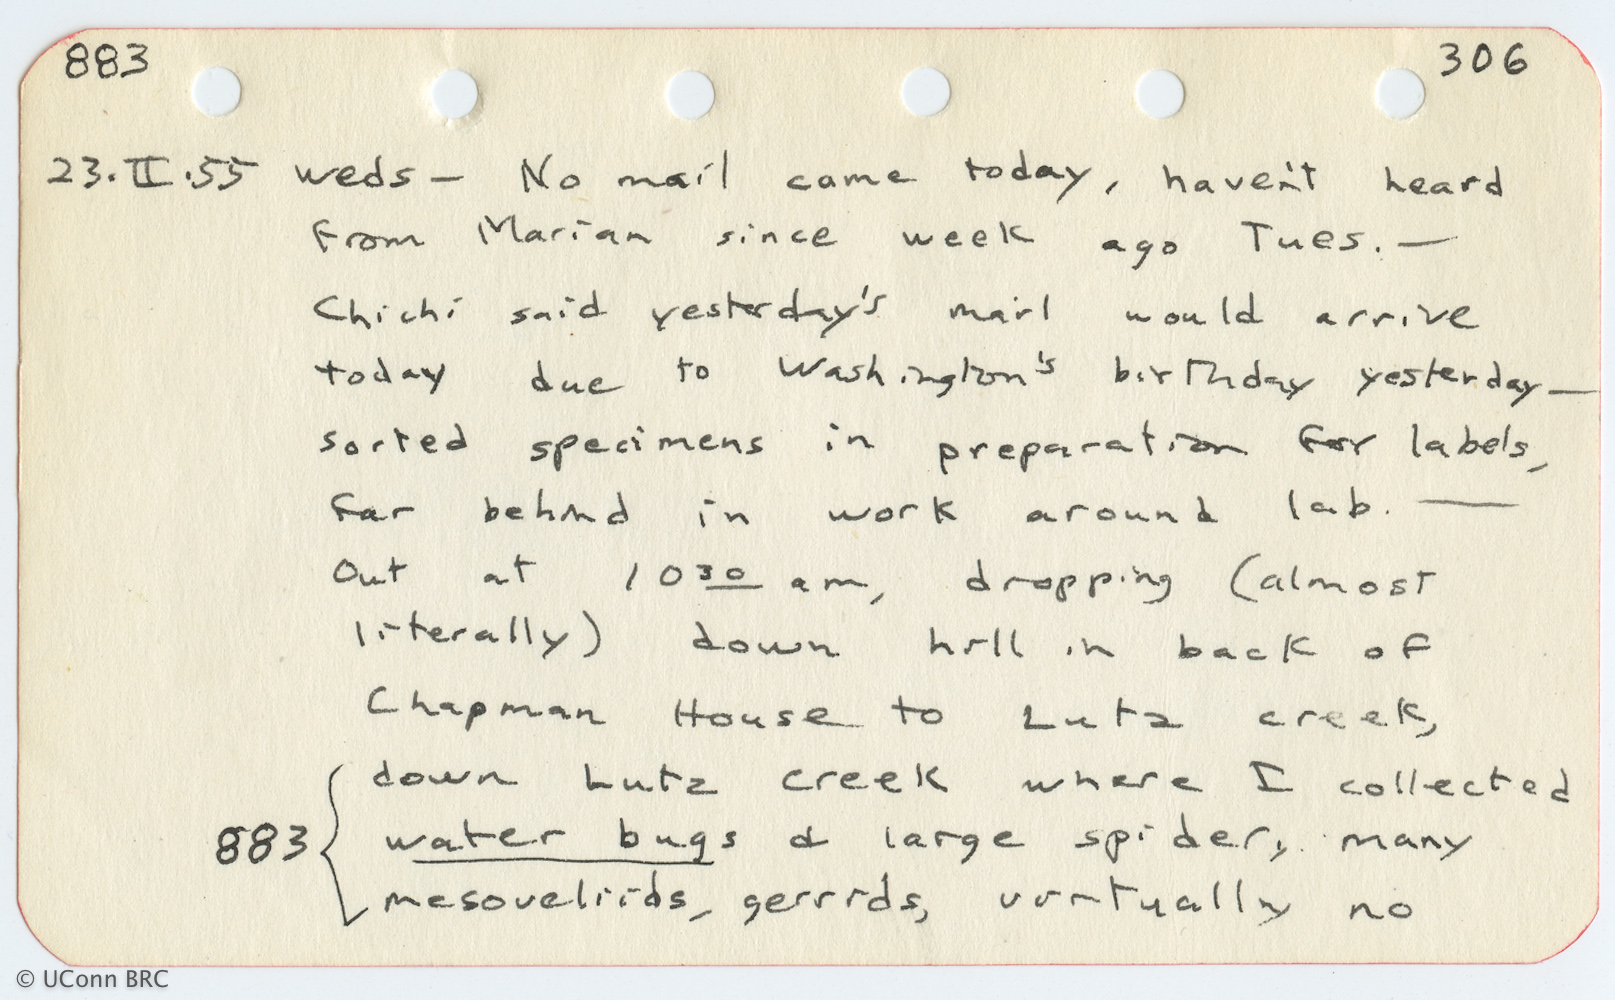 883 306
23.II.55 weds — No mail came today, haven't heard
from Marian since week ago Tues. —
Chichi said yesterday's mail would arrive
today due to Washington's birthday yesterday—
sorted specimens in preparation for labels,
far behind in work around lab. —
Out at 10 30 am, dropping (almost
literally) down hill in back of
Chapman House to Lutz creek,
down Lutz creek where I collected
883 { water bugs & large spider, many
mesoveliids, gerrids, virtually no
© UConn BRC